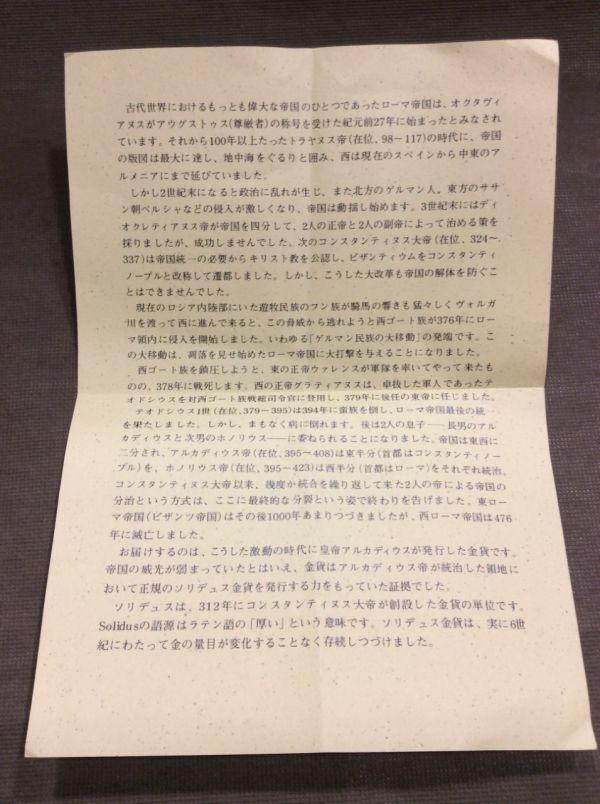 古代世界におけるもっとも偉大な帝国のひとつであったローマ帝国は、オクタヴィ
アヌスがアウグストゥス(尊厳者)の称号を受けた紀元前27年に始まったとみなされ
ています。それから100年以上たったトラヤヌス帝(在位、98〜117)の時代に、帝国
の版図は最大に達し、地中海をぐるりと囲み、西は現在のスペインから中東のア
ルメニアにまで延びていました。
しかし2世紀末になると政治に乱れが生じ、また北方のゲルマン人、東方のササ
ン朝ペルシャなどの侵入が激しくなり、帝国は動揺し始めます。3世紀末にはディ
オクレティアヌス帝が帝国を四分して、2人の正帝と2人の副帝によって治める策を
採りましたが、成功しませんでした。次のコンスタンティヌス大帝(在位、324〜
337)は帝国統一の必要からキリスト教を公認し、ビザンティウムをコンスタンティ
ノープルと改称して遷都しました。しかし、こうした大改革も帝国の解体を防ぐこ
とはできませんでした。
現在のロシア内陸部にいた遊牧民族のフン族が騎馬の響きも猛々しくヴォルガ
川を渡って西に進んで来ると、この脅威から逃れようと西ゴート族が376年にロー
マ領内に侵入を開始しました。いわゆる「ゲルマン民族の大移動」の発端です。こ
の大移動は、凋落を見せ始めたローマ帝国に大打撃を与えることになりました。
西ゴート族を鎮圧しようと、東の正帝ウァレンスが軍隊を率いてやって来たも
のの、378年に戦死します。西の正帝グラティアヌスは、卓抜した軍人であったテ
オドシウスを対西ゴート族戦総司令官に登用し、379年に後任の東帝に任じました。
テオドシウス1世(在位、379〜395)は394年に蛮族を倒し、ローマ帝国最後の統一
を果たしました。しかし、まもなく病に倒れます。後は2人の息子――長男のアル
カディウスと次男のホノリウス――に委ねられることになりました。帝国は東西に
二分され、アルカディウス帝(在位、395〜408)は東半分(首都はコンスタンティノー
プル)を、ホノリウス帝(在位、395〜423)は西半分(首都はローマ)をそれぞれ統治。
コンスタンティヌス大帝以来、幾度か統合を繰り返して来た2人の帝による帝国の
分治という方式は、ここに最終的な分裂という姿で終わりを告げました。東ロー
マ帝国(ビザンツ帝国)はその後1000年あまりつづきましたが、西ローマ帝国は476
年に滅亡しました。
お届けするのは、こうした激動の時代に皇帝アルカディウスが発行した金貨です。
帝国の威光が弱まっていたとはいえ、金貨はアルカディウス帝が統治した領地に
おいて正規のソリデュス金貨を発行する力をもっていた証拠でした。
ソリデュスは、312年にコンスタンティヌス大帝が創設した金貨の単位です。
Solidusの語源はラテン語の「厚い」という意味です。ソリデュス金貨は、実に6世
紀にわたって金の量目が変化することなく存続しつづけました。